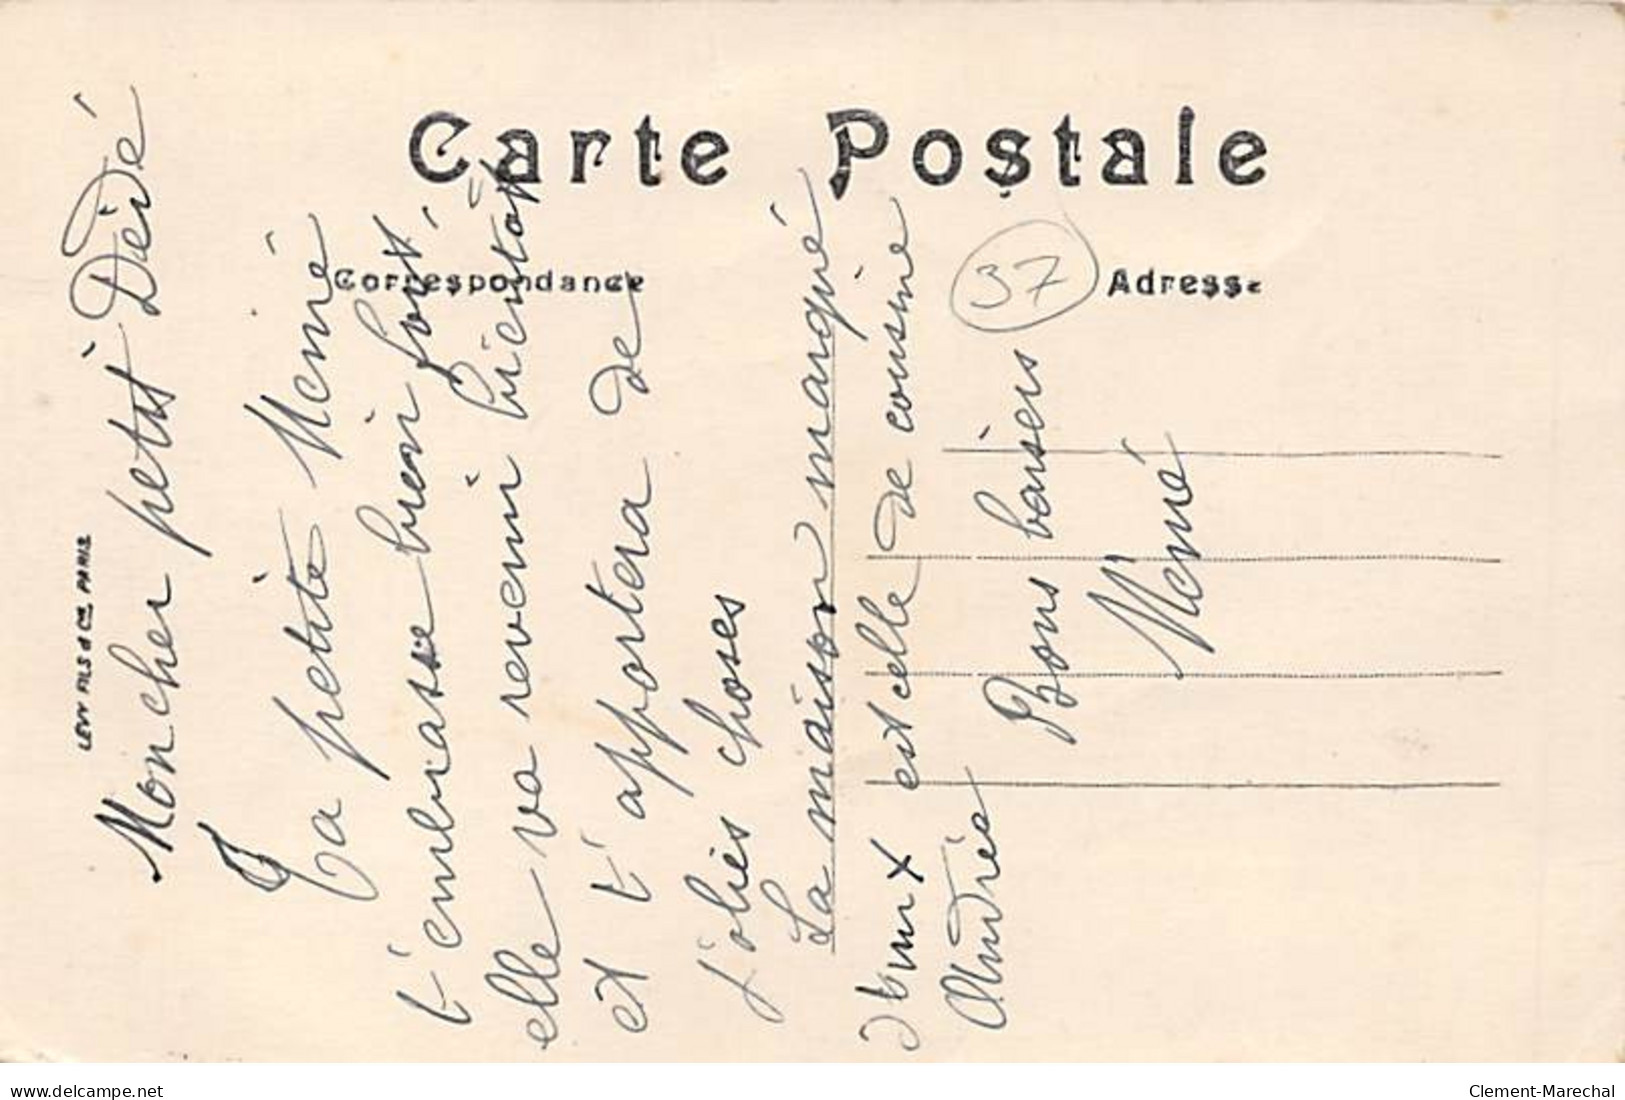 Carte Postale
Correspondance
Adresse
37
LEVY FILS & Cie PARIS
Mon cher petit Dédé
Ta petite Mémé
t'embrasse bien fort,
elle va revenir bientôt
et t'apportera de
jolies choses
La maison marqué
d'un x est celle de cousine
Andrée
Bons baisers
Mémé
www.delcampe.net
Clement-Marechal